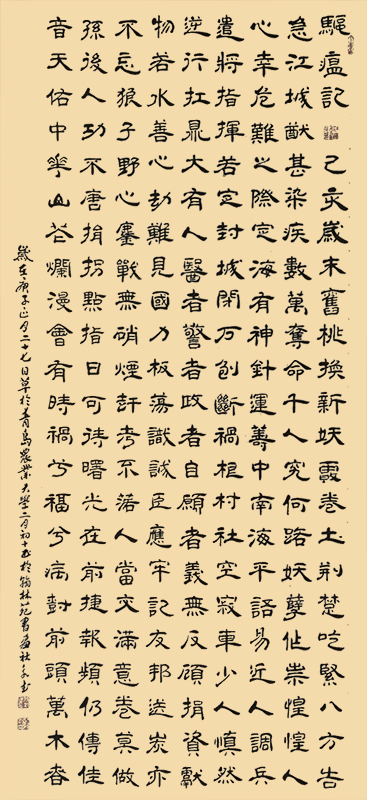 驅瘟記 己亥歲末舊桃換新妖霞卷土荆楚吃緊八方告
急江城猷甚染疾數萬奪命千人究何路妖孽作祟惶惶人
心幸危難之際定海有神針運籌中南海平語易近人調兵
遣將指揮若定封城閉斷禍根村社空寂車少人慎然
逆行扛鼎大有人醫者警者政者自願者義無反顧捐資獻
物若水善心劫難見國力板蕩識誠臣應牢記友邦送炭亦
不忘狼子野心鏖戰無硝煙考人當交滿意卷莫做
孫後人功不唐捐拐點指日可待曙光在前捷報頻仍傳佳
音天佑中華山花爛漫會有時禍兮福兮病樹前頭萬木春
歲在庚子正月二十七日草於青島農業大學二月初十書於翰林苑書畫社